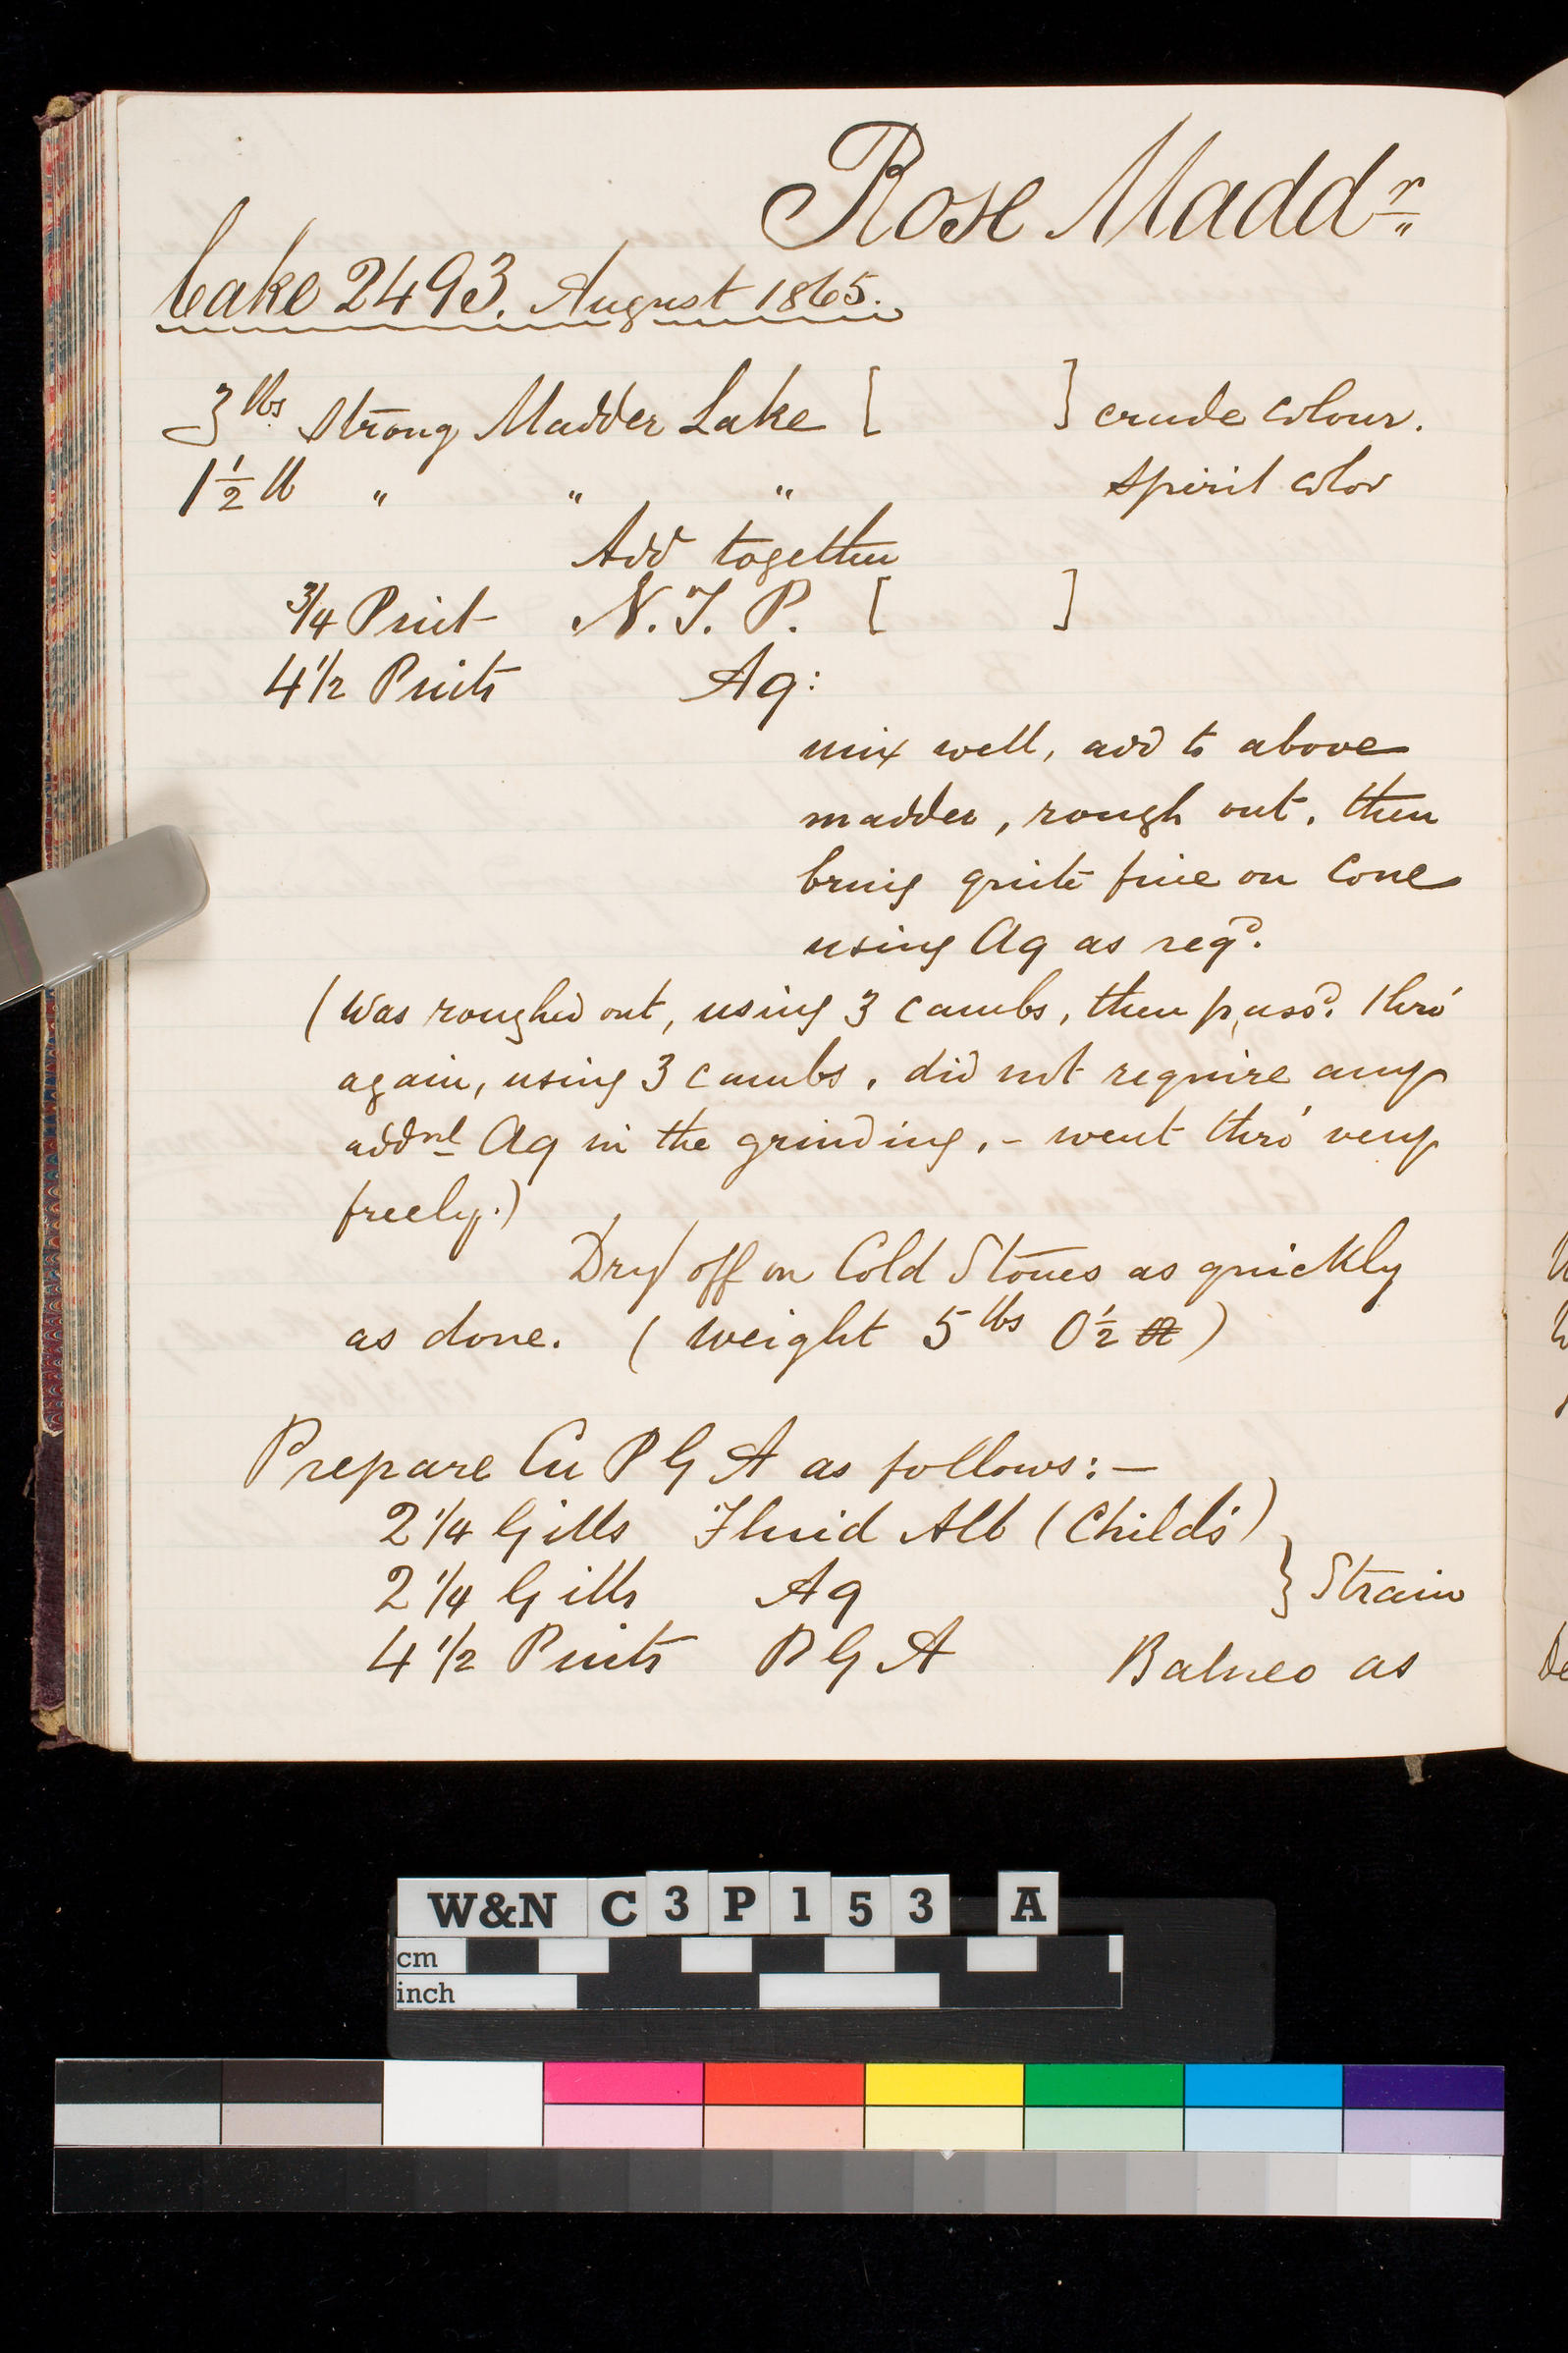 Rose Madd^r
Cake 2493. August 1865.
3 lbs Strong Madder Lake [ ] crude colour.
1 1/2 lb " " " spirit color
Add together
3/4 Pint N. T. P. [ ]
4 1/2 Pints Aq:
mix well, add to above
madder, rough out, then
bring quite fine on Cone
using Aq as req^d.
(Was roughed out, using 3 cambs, then pass^d. thro'
again, using 3 cambs, did not require any
add^nl Aq in the grinding, - went thro' very
freely.)
Dry off on Cold Stones as quickly
as done. (weight 5 lbs 0 1/2 lb)
Prepare Cu P G A as follows:—
2 1/4 Gills Fluid Alb (Childs')
2 1/4 Gills Aq } Strain
4 1/2 Pints P G A Balneo as
W&N C3P153 A
cm
inch